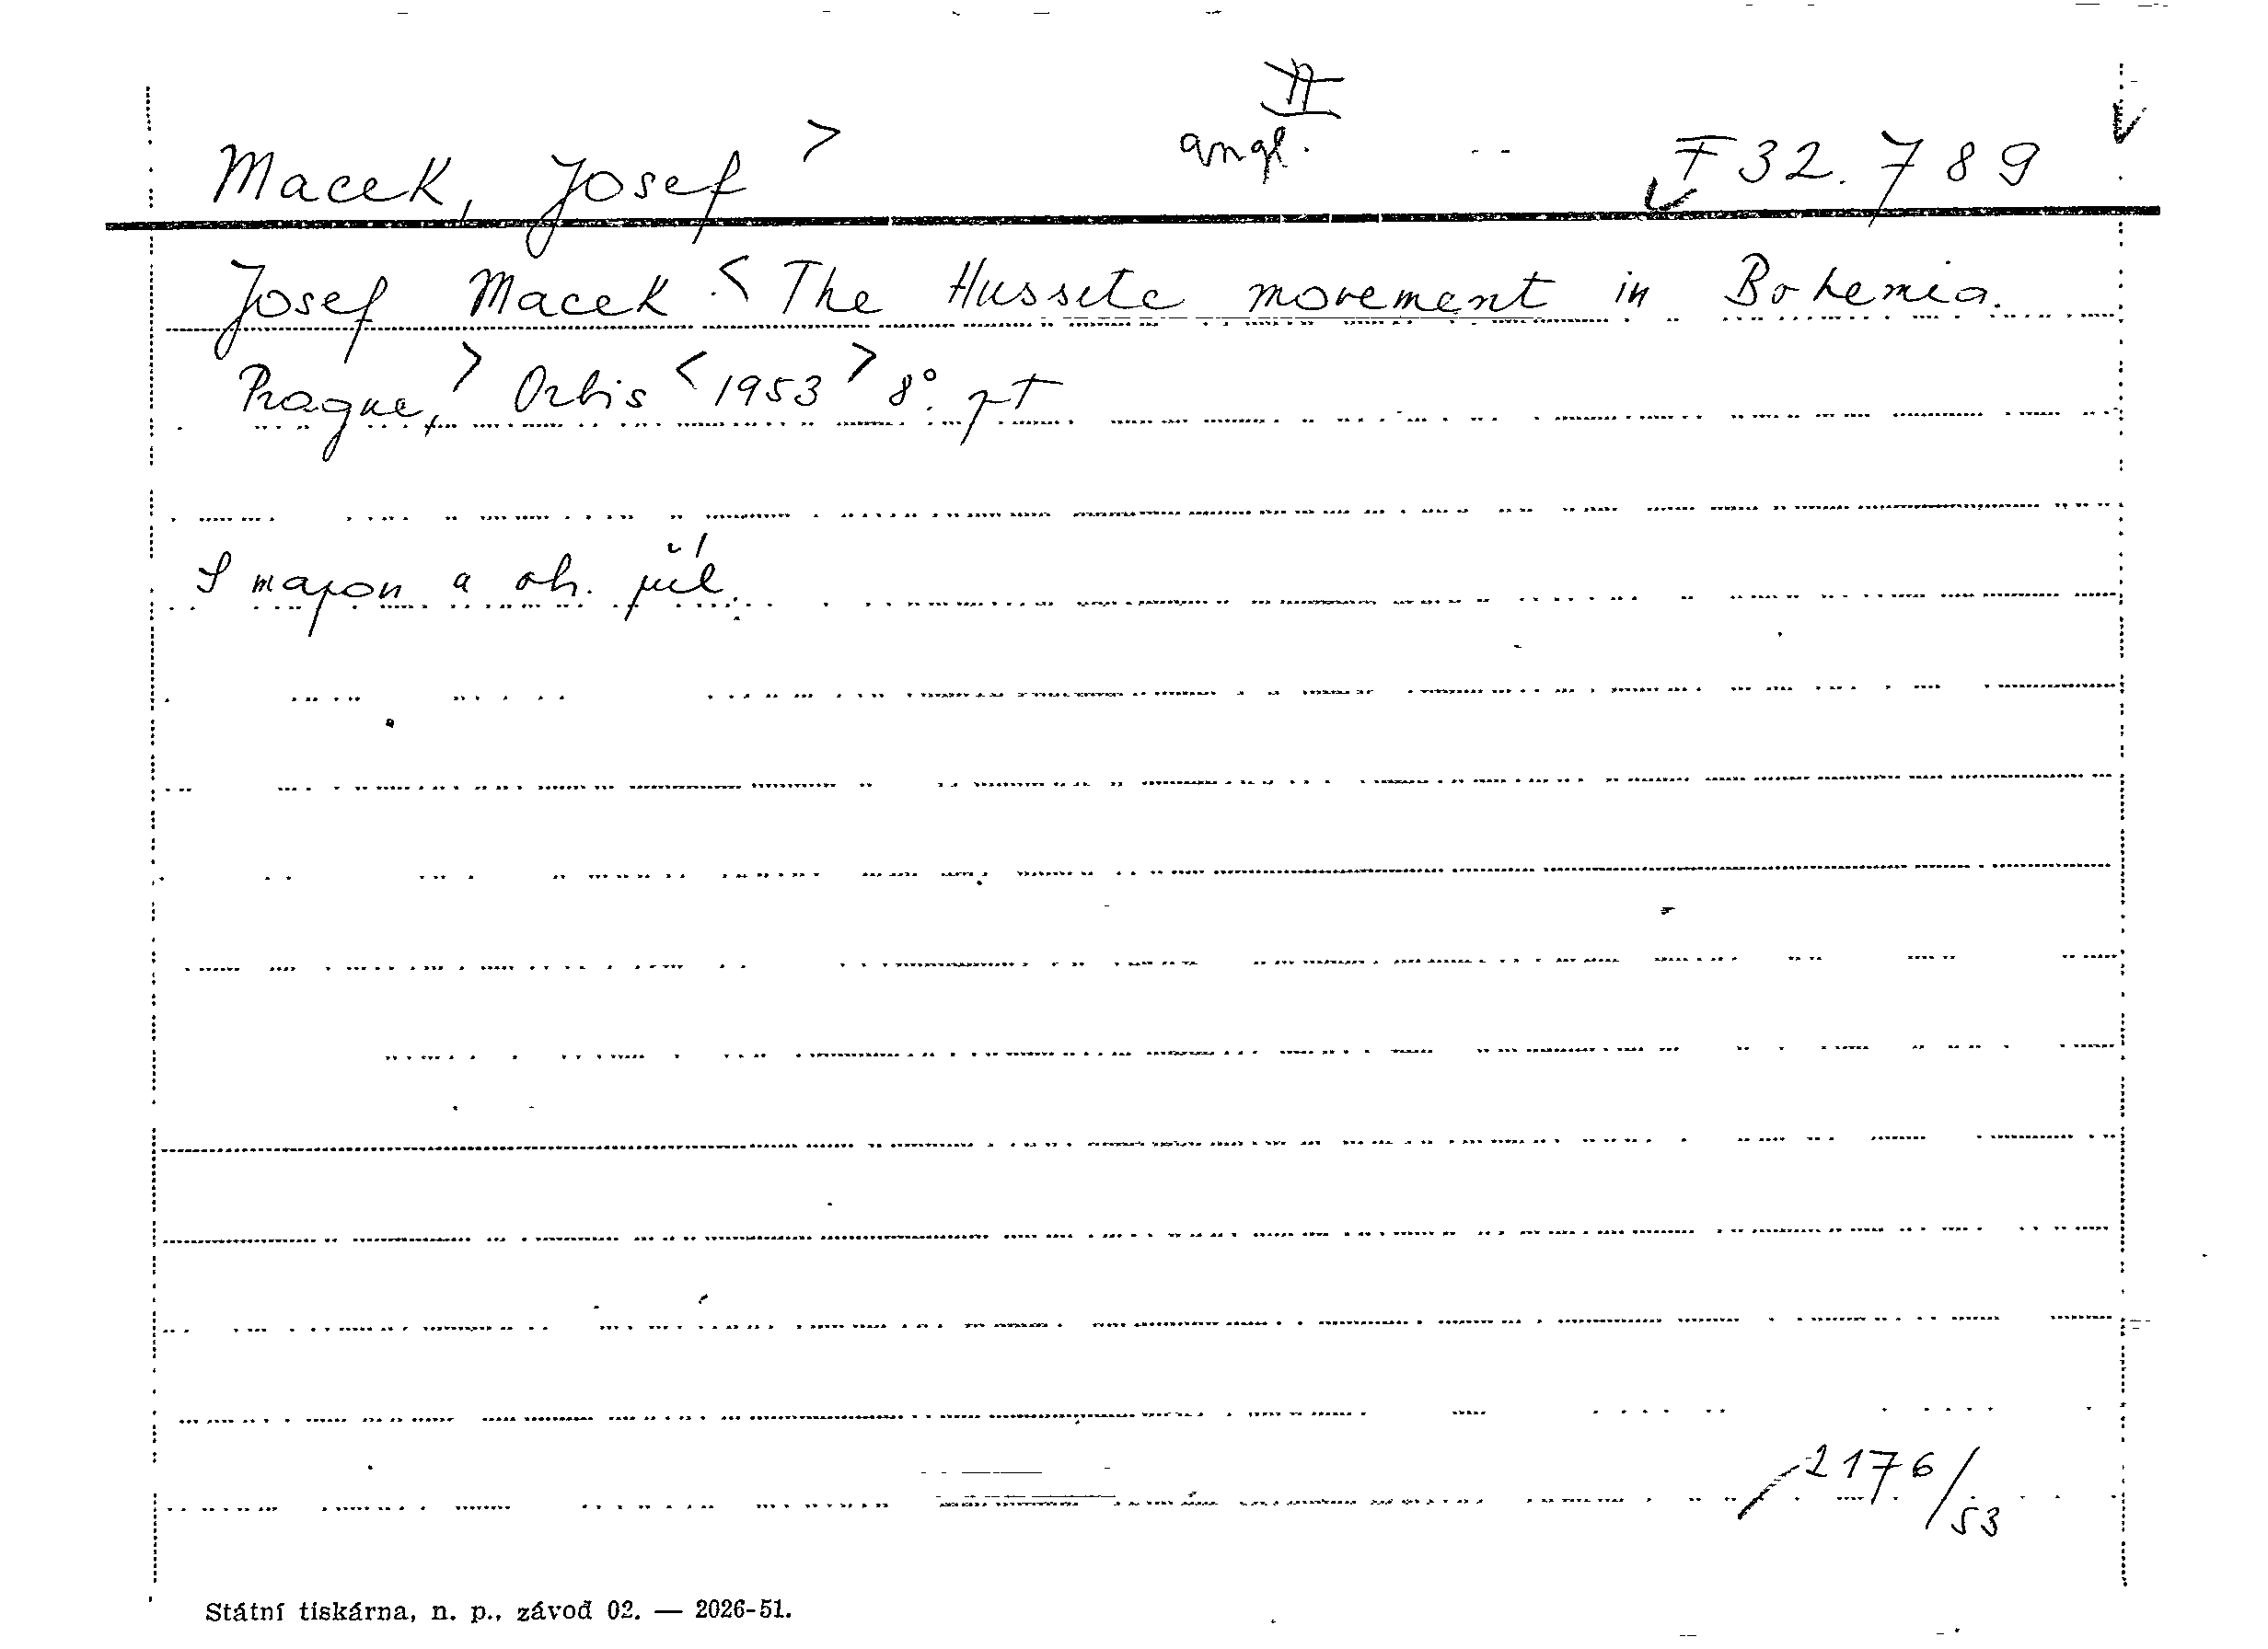 II
Macek, Josef > angl. F 32.789
Josef Macek < The Hussite movement in Bohemia.
Prague, > Orbis < 1953 > 8°. pt
S mapou a ob. příl.
2176/53
Státní tiskárna, n. p., závod 02. — 2026-51.